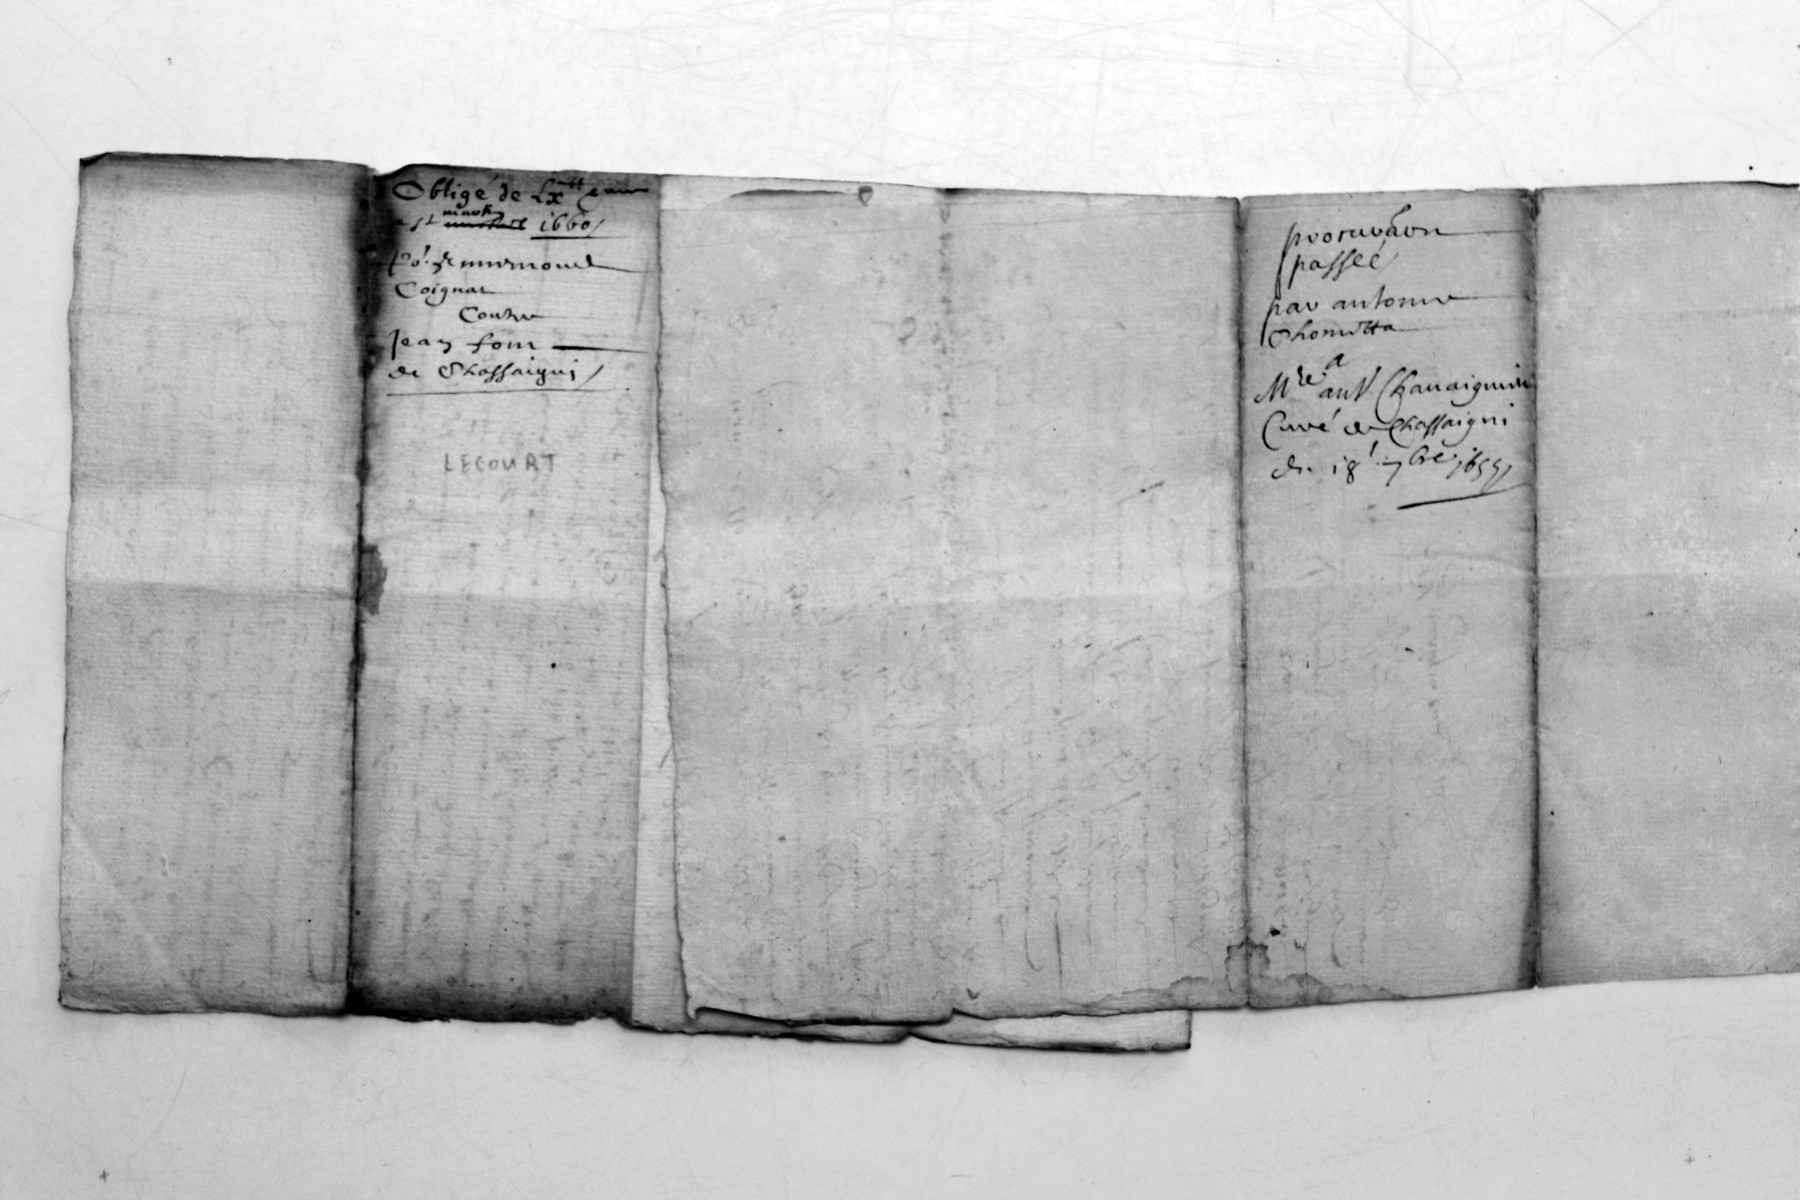 Obligé de Lxtt
marti 1660
Coignat
Contre
Jean four
de Chassaigni
LECOURT
procura͠on
passée
par antoine
Mre ant Chavaignier
Curé de Chassaigni
du 18 7bre 1655